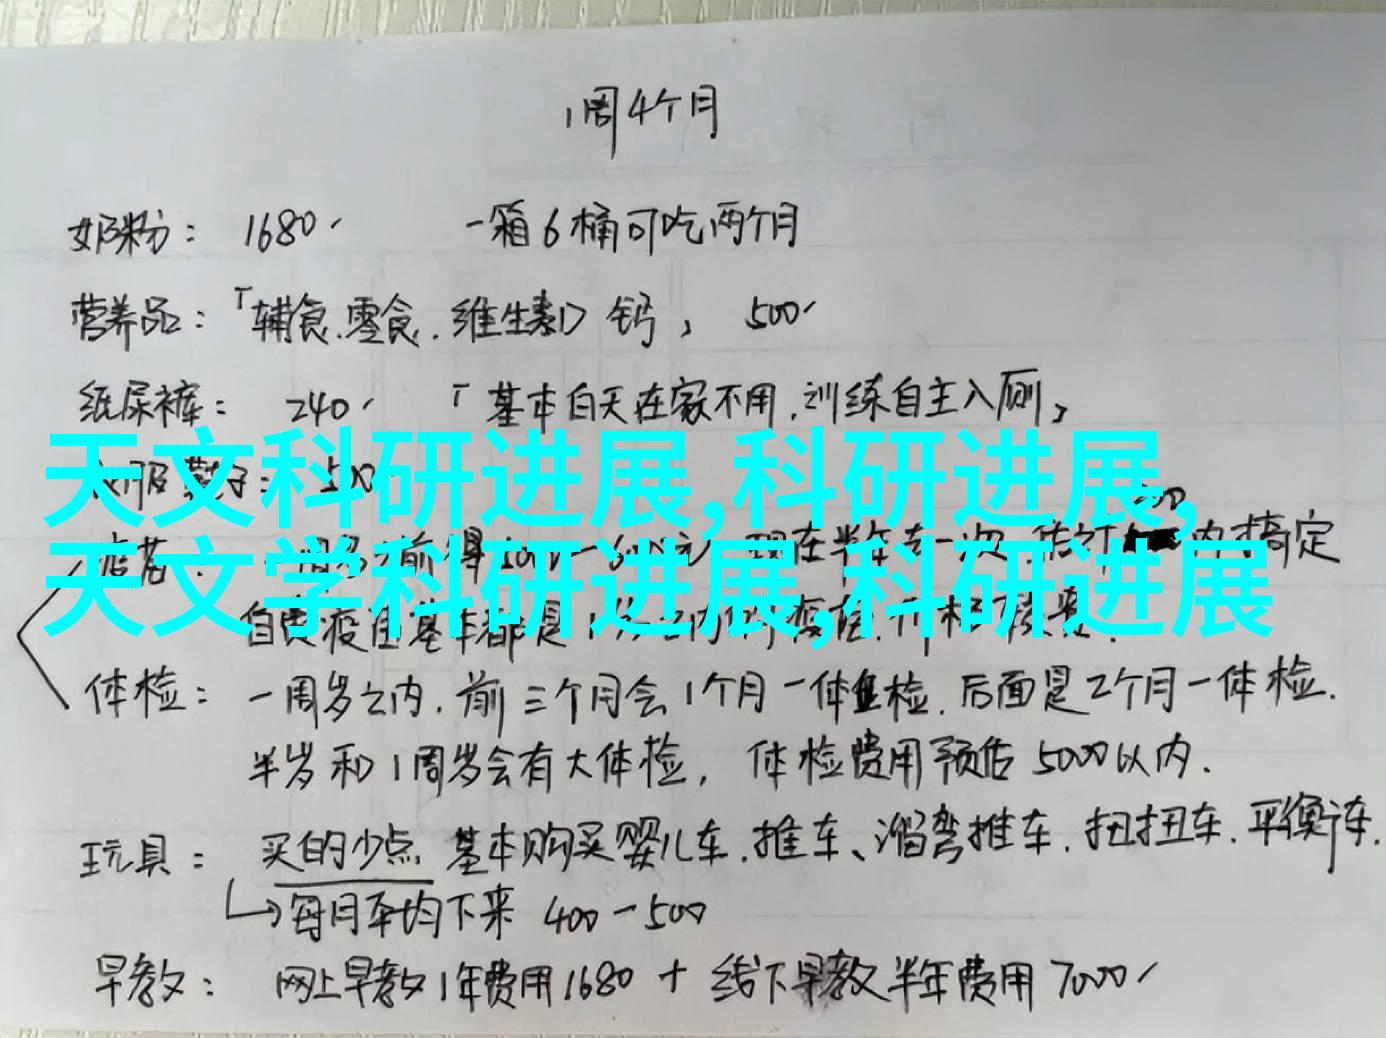 1周4个月
奶粉： 1680 一箱6桶可吃两个月
营养品：「辅食.零食.维生素D 钙」 500
纸尿裤： 240 「基本白天在家不用.训练自主入厕」
天文科研进展,科研进展,
衣服 500
天文学科研进展,科研进展
疫苗： 现在半年去一次 内搞定
自费疫苗基本都是
体检： 一周岁之内.前三个月会1个月一体检.后面是2个月一体检.
半岁和1周岁会有大体检， 体检费用预估5000以内.
玩具： 买的少点 基本购买婴儿车.推车、溜弯推车.扭扭车.平衡车.
每月平均下来 400-500
早教： 网上早教1年费用1680 + 线下早教半年费用7000